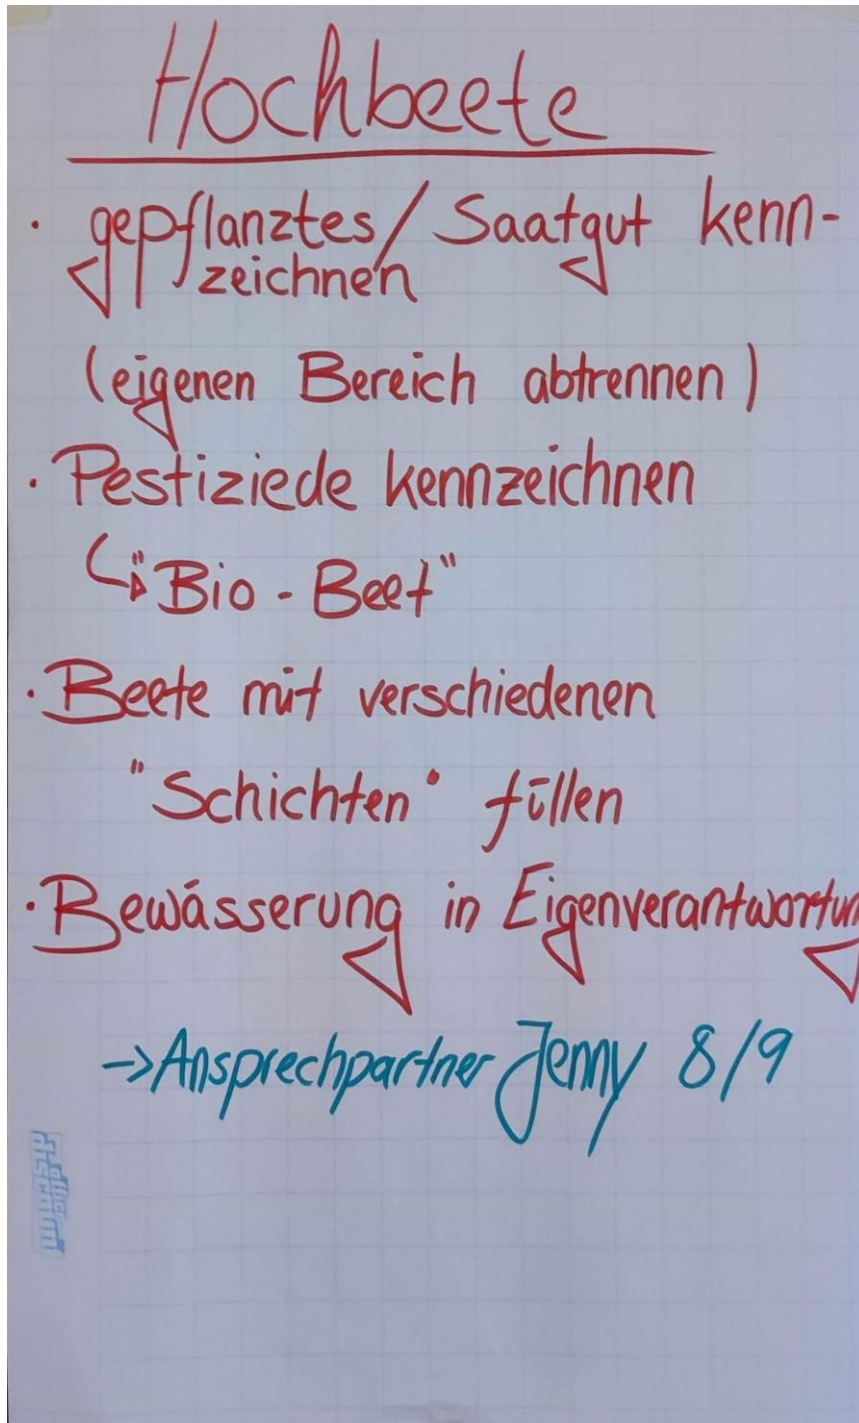 Hochbeete
· gepflanztes/ Saatgut kenn-
zeichnen
(eigenen Bereich abtrennen)
· Pestiziede kennzeichnen
↳ "Bio - Beet"
· Beete mit verschiedenen
"Schichten" füllen
· Bewässerung in Eigenverantwortun
-> Ansprechpartner Jenny 8/9
office
discount